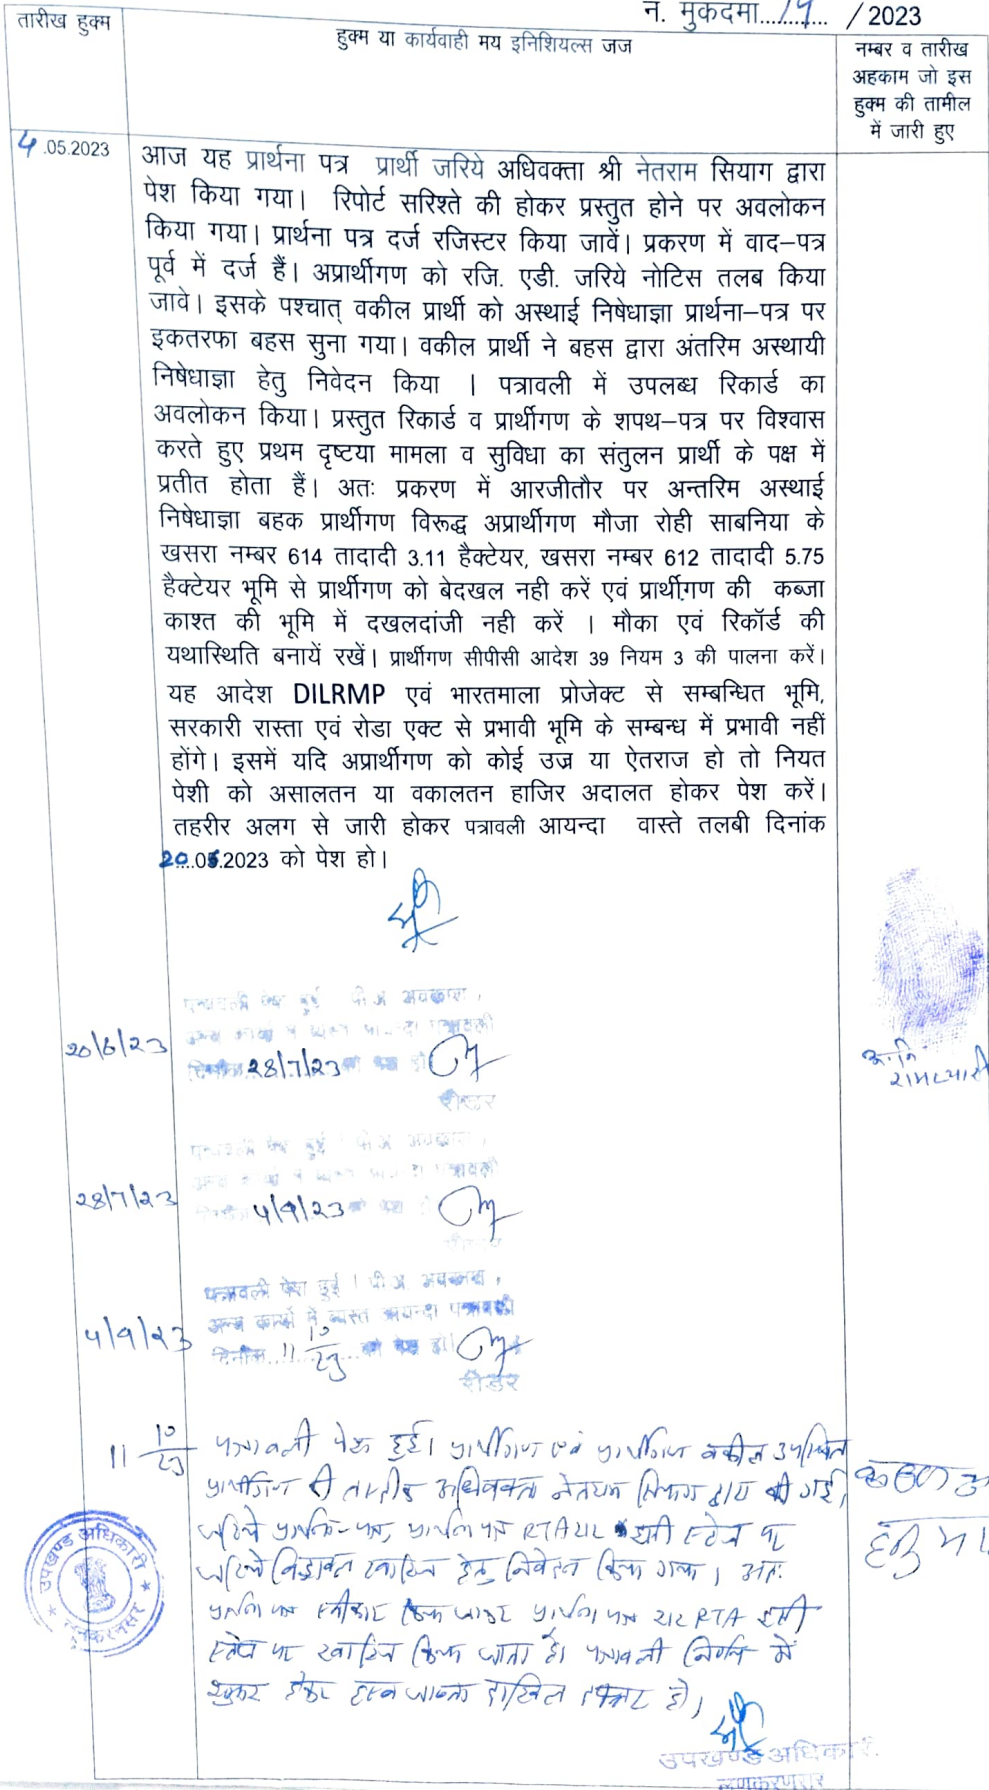 न. मुकदमा...19... / 2023
तारीख हुक्म
हुक्म या कार्यवाही मय इनिशियल्स जज
नम्बर व तारीख
अहकाम जो इस
हुक्म की तामील
में जारी हुए
4.05.2023
आज यह प्रार्थना पत्र प्रार्थी जरिये अधिवक्ता श्री नेतराम सियाग द्वारा
पेश किया गया। रिपोर्ट सरिश्ते की होकर प्रस्तुत होने पर अवलोकन
किया गया। प्रार्थना पत्र दर्ज रजिस्टर किया जावें। प्रकरण में वाद–पत्र
पूर्व में दर्ज हैं। अप्रार्थीगण को रजि. एडी. जरिये नोटिस तलब किया
जावे। इसके पश्चात् वकील प्रार्थी को अस्थाई निषेधाज्ञा प्रार्थना–पत्र पर
इकतरफा बहस सुना गया। वकील प्रार्थी ने बहस द्वारा अंतरिम अस्थायी
निषेधाज्ञा हेतु निवेदन किया । पत्रावली में उपलब्ध रिकार्ड का
अवलोकन किया। प्रस्तुत रिकार्ड व प्रार्थीगण के शपथ–पत्र पर विश्वास
करते हुए प्रथम दृष्टया मामला व सुविधा का संतुलन प्रार्थी के पक्ष में
प्रतीत होता हैं। अतः प्रकरण में आरजीतौर पर अन्तरिम अस्थाई
निषेधाज्ञा बहक प्रार्थीगण विरूद्ध अप्रार्थीगण मौजा रोही साबनिया के
खसरा नम्बर 614 तादादी 3.11 हैक्टेयर, खसरा नम्बर 612 तादादी 5.75
हैक्टेयर भूमि से प्रार्थीगण को बेदखल नही करें एवं प्रार्थीगण की कब्जा
काश्त की भूमि में दखलदांजी नही करें । मौका एवं रिकॉर्ड की
यथास्थिति बनायें रखें। प्रार्थीगण सीपीसी आदेश 39 नियम 3 की पालना करें।
यह आदेश DILRMP एवं भारतमाला प्रोजेक्ट से सम्बन्धित भूमि,
सरकारी रास्ता एवं रोडा एक्ट से प्रभावी भूमि के सम्बन्ध में प्रभावी नहीं
होंगे। इसमें यदि अप्रार्थीगण को कोई उज्र या ऐतराज हो तो नियत
पेशी को असालतन या वकालतन हाजिर अदालत होकर पेश करें।
तहरीर अलग से जारी होकर पत्रावली आयन्दा वास्ते तलबी दिनांक
20.06.2023 को पेश हो।
पत्रावली पेश हुई पी.अ. अवकाश,
20/6/23 अन्य कार्यो में व्यस्त आयन्दा पत्रावली
दिनांक 28/7/23 को पेश हो
रीडर
रामप्यारी
पत्रावली पेश हुई पी.अ. अवकाश,
अन्य कार्यो में व्यस्त आयन्दा पत्रावली
28/7/23 दिनांक 4/9/23 को पेश हो
पत्रावली पेश हुई । पी.अ. अवकाश,
अन्य कार्यो में व्यस्त आयन्दा पत्रावली
4/9/23 दिनांक 11 10/23 को पेश हो।
रीडर
11 10/23 पत्रावली पेश हुई। प्रार्थीगण एवं प्रार्थीगण वकील उपस्थित
प्रार्थीगण की अधिवक्ता नेतराम सियाग द्वारा की गई।
जरिये प्रार्थना-पत्र, प्रार्थना पत्र RTA इसी स्टेज पर
खारिज हेतु निवेदन किया गया। अतः
प्रार्थना पत्र स्वीकार किया जाकर प्रार्थना पत्र RTA इसी
स्टेज पर खारिज किया जाता है। पत्रावली निर्णित में
शुमार होकर दाखिल दफ्तर हो।
उपखण्ड अधिकारी
लूणकरनसर
उपखण्ड अधिकारी
लूणकरणसर